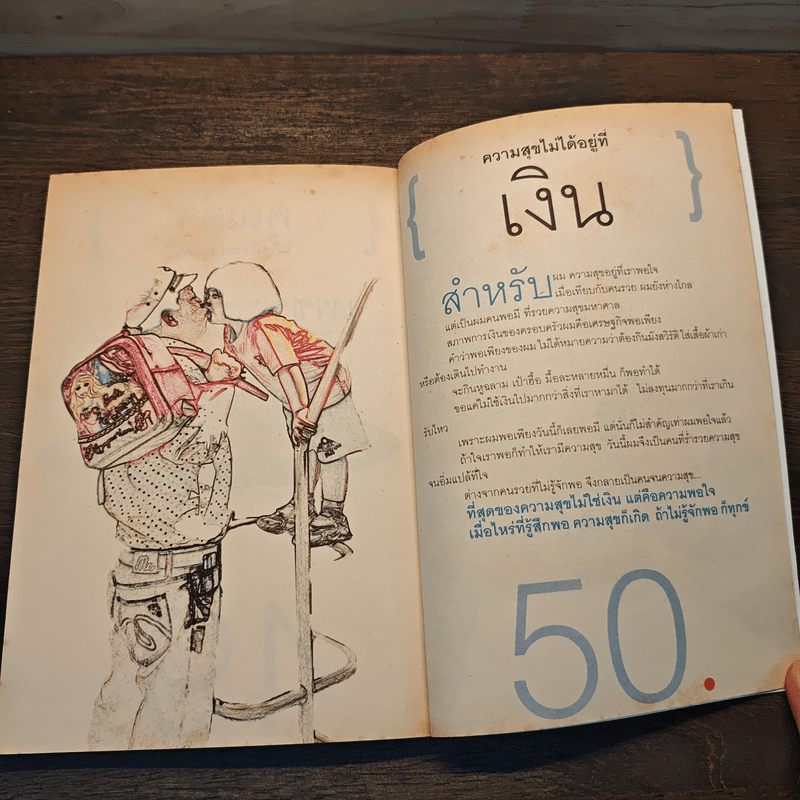 ความสุขไม่ได้อยู่ที่
{ เงิน }
สำหรับผม ความสุขอยู่ที่เราพอใจ
เมื่อเทียบกับคนรวย ผมยังห่างไกล
แต่เป็นผมคนพอมี ที่รวยความสุขมหาศาล
สภาพการเงินของครอบครัวผมคือเศรษฐกิจพอเพียง
คำว่าพอเพียงของผม ไม่ได้หมายความว่าต้องกินมังสวิรัติ ใส่เสื้อผ้าเก่า
หรือต้องเดินไปทำงาน
จะกินหูฉลาม เป๋าฮื้อ มื้อละหลายหมื่น ก็พอทำได้
ขอแค่ไม่ใช้เงินไปมากกว่าสิ่งที่เราหามาได้ ไม่ลงทุนมากกว่าที่เราเกิน
รับไหว
เพราะผมพอเพียงวันนี้ก็เลยพอมี แต่นั่นก็ไม่สำคัญเท่าผมพอใจแล้ว
ถ้าใจเราพอก็ทำให้เรามีความสุข วันนี้ผมจึงเป็นคนที่ร่ำรวยความสุข
จนอิ่มแปล้ที่ใจ
ต่างจากคนรวยที่ไม่รู้จักพอ จึงกลายเป็นคนจนความสุข...
ที่สุดของความสุขไม่ใช่เงิน แต่คือความพอใจ
เมื่อไหร่ที่รู้สึกพอ ความสุขก็เกิด ถ้าไม่รู้จักพอ ก็ทุกข์
50